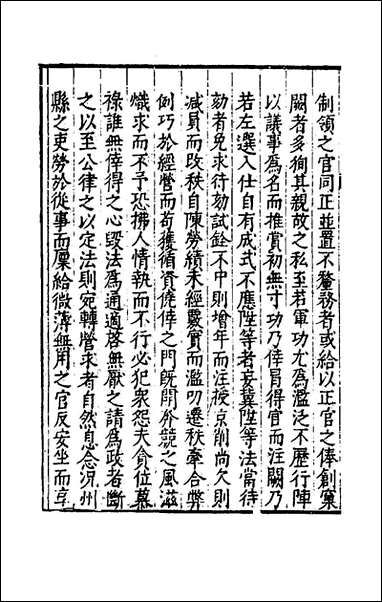 制領之官同正並置不釐務者或給以正官之俸創窠
闕者多狥其親故之私至若軍功尤為濫泛不歷行陣
以議事為名而推賞初無寸功乃倖冒得官而注闕乃
若左選入仕自有成式不應陞等者妄冀陞等法當待
劾者免求待劾試銓不中則增年而注授京削尚欠則
減員而改秩自陳勞績未經覈實而濫叨遷秩牽合弊
例巧於經營而苟獲循資僥倖之門旣開奔競之風滋
熾求而不予恐拂人情執而不行必犯衆怨夫貪位慕
祿誰無倖得之心毀法為通適啓無厭之請為政者斷
之以至公律之以定法則宛轉營求者自然息念況州
縣之吏勞於從事而廩給微薄無用之官反安坐而享